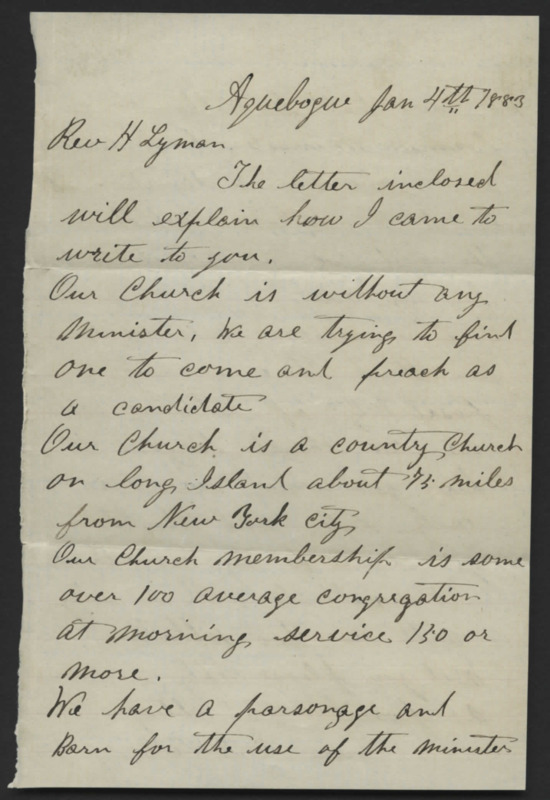 Aquebogue Jan 4th 1883
Rev H Lyman.
The letter inclosed
will explain how I came to
write to you.
Our Church is without any
Minister, We are trying to find
one to come and preach as
a candidate
Our Church is a country Church
on long Island about 75 miles
from New York city
Our Church membership is some
over 100 average congregation
at morning service 150 or
more.
We have a parsonage and
Barn for the use of the minister